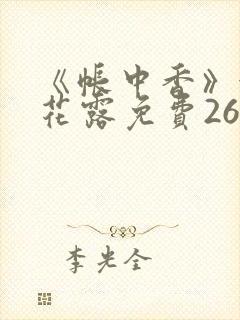 《帐中香》
花露免費26
李光全